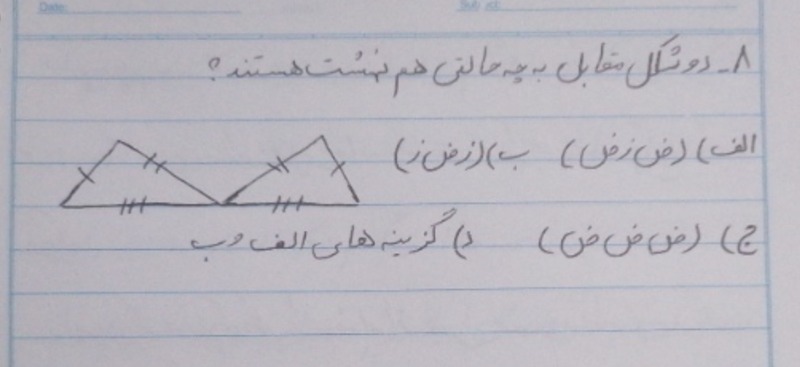 Date:
Subject:
۸- دو شکل مقابل به چه حالتی هم نهشت هستند؟
الف) (ض ز ض) ب) (ز ض ز)
ج) (ض ض ض) د) گزینه های الف و ب